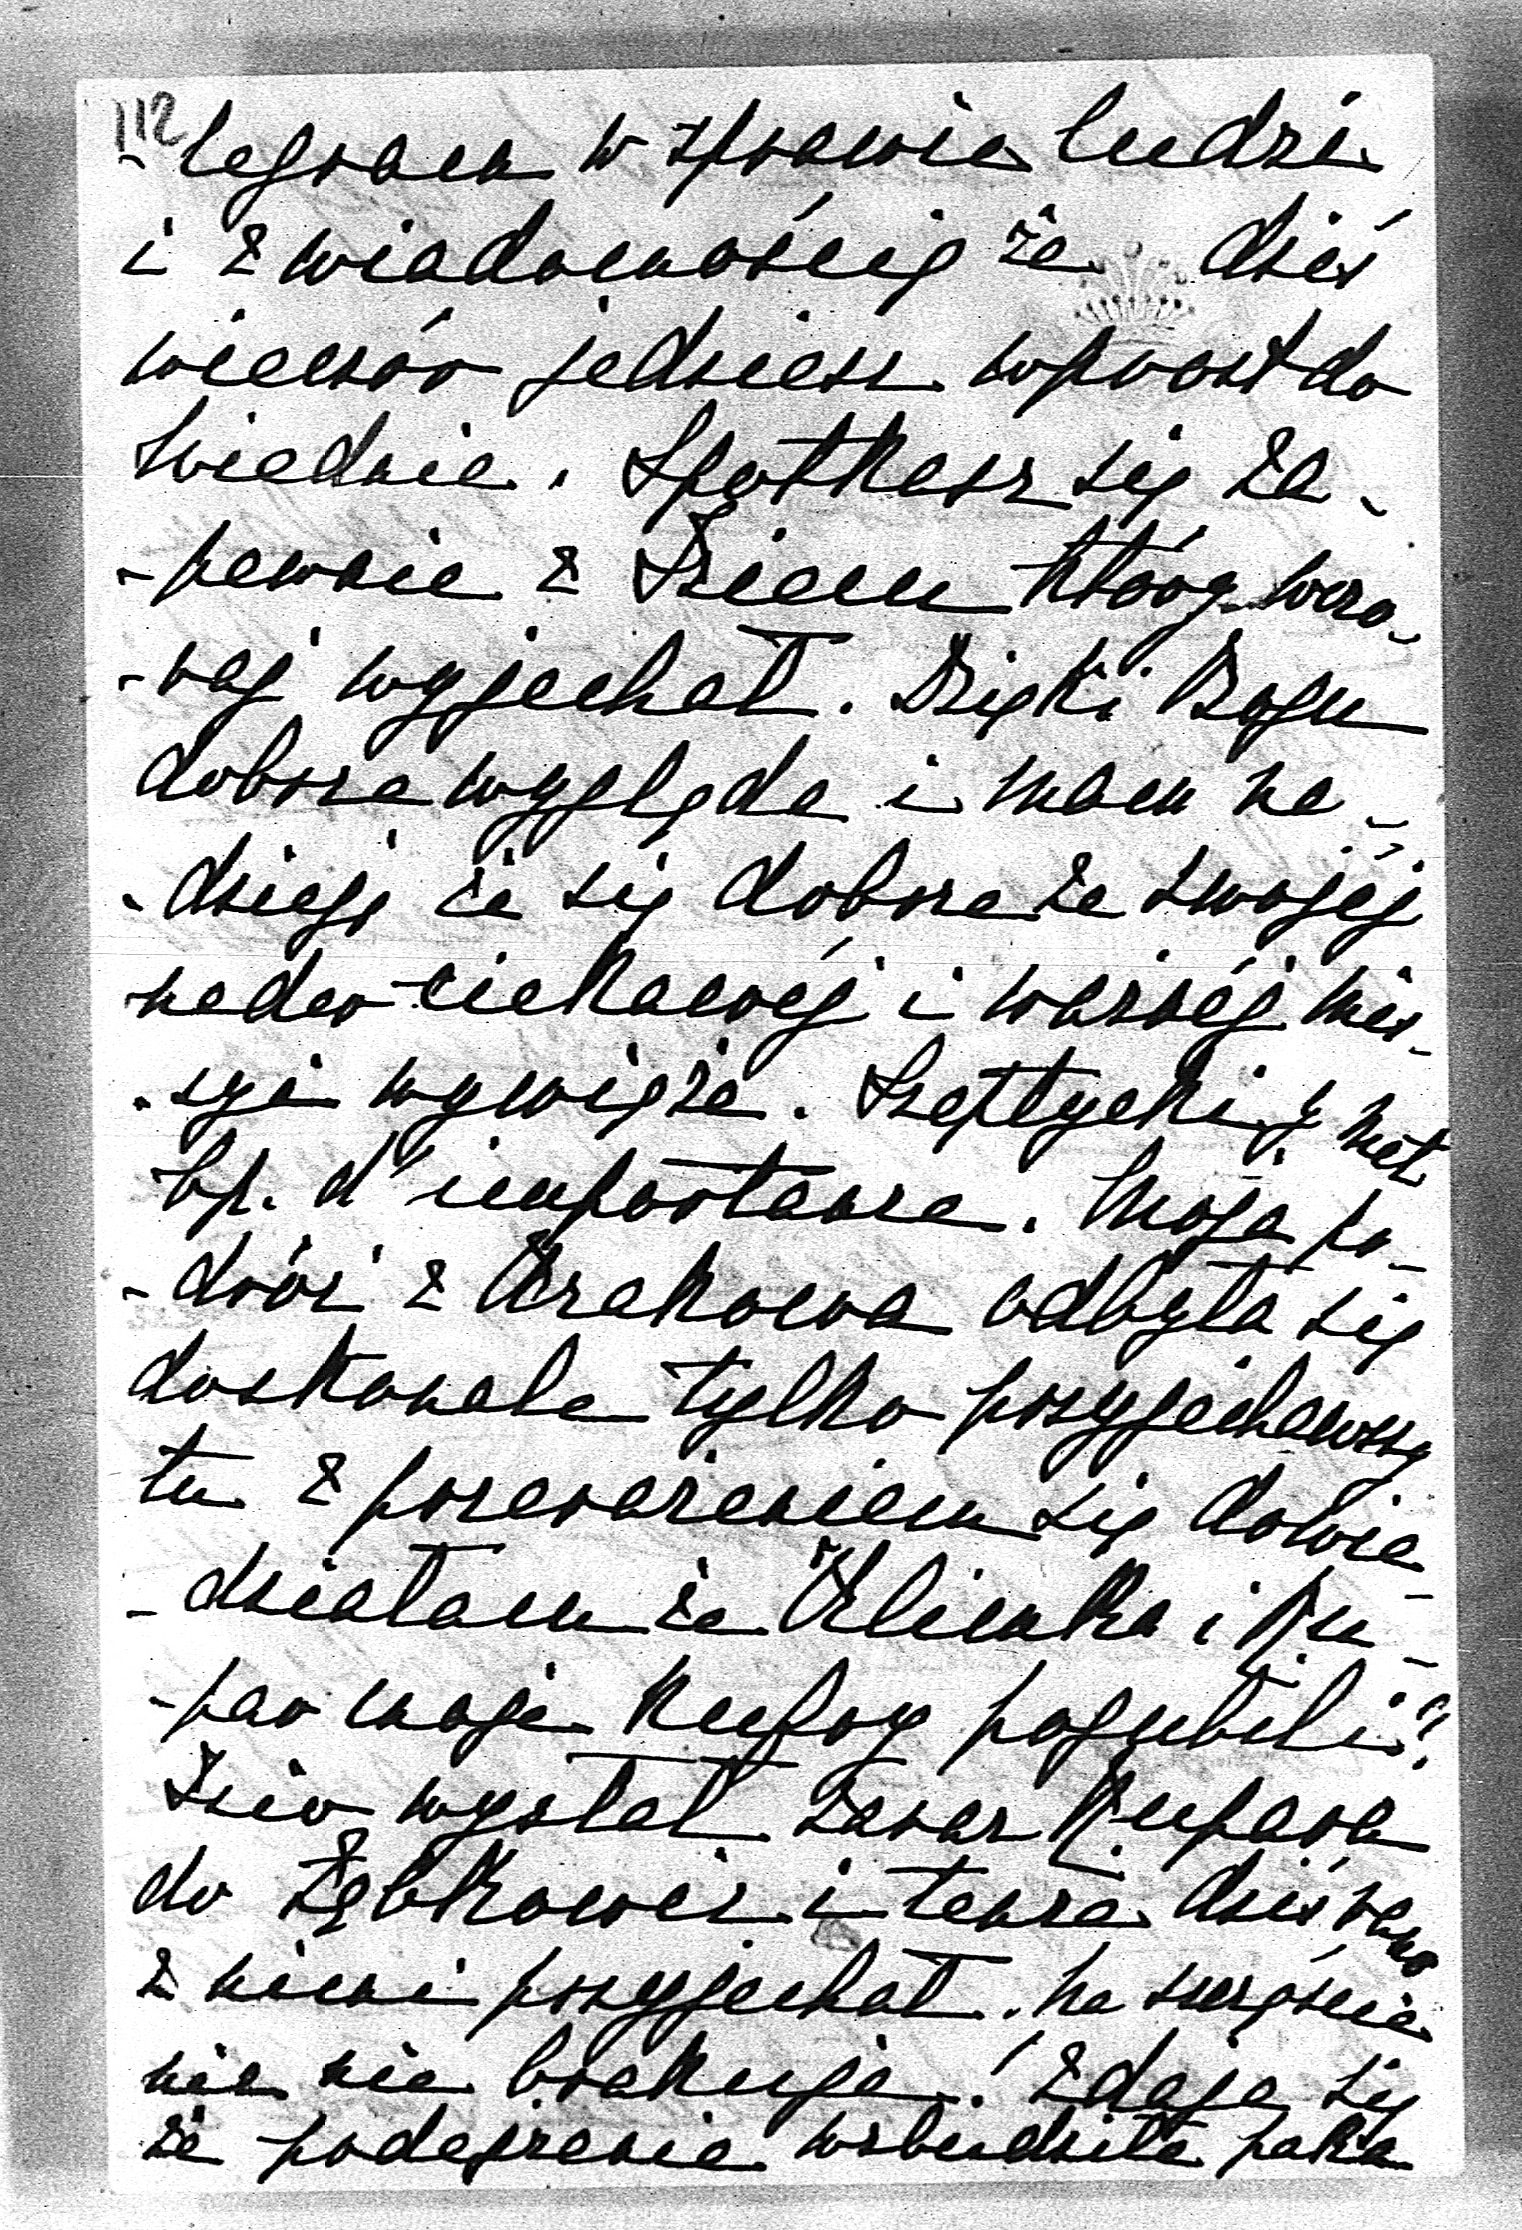 112
-legram w sprawie ludzi
i z wiadomością że dziś
wieczór jedziesz wprost do
Wiednia. Spotkasz się za-
-pewnie z Iziem który wczo-
-raj wyjechał. Dzięki Bogu
dobrze wygląda i mam na-
-dzieję że się dobrze ze swojéj
nader ciekawéj i ważnéj mis-
-syi wywiąże. Szeptycki y met
bp. d'importance. Moja po-
-dróż z Krakowa odbyła się
doskonale tylko przyjechawszy
tu z przerażeniem się dowie-
-działam że Klimka i Ku-
-par moje kufry pogubili!!
Izio wysłał zaraz Kupara
do Ząbkowic i tenże dziś rano
z niemi przyjechał. Na szczęście
nic nie brakuje! Zdaje się
że podejrzenie wzbudziła paka